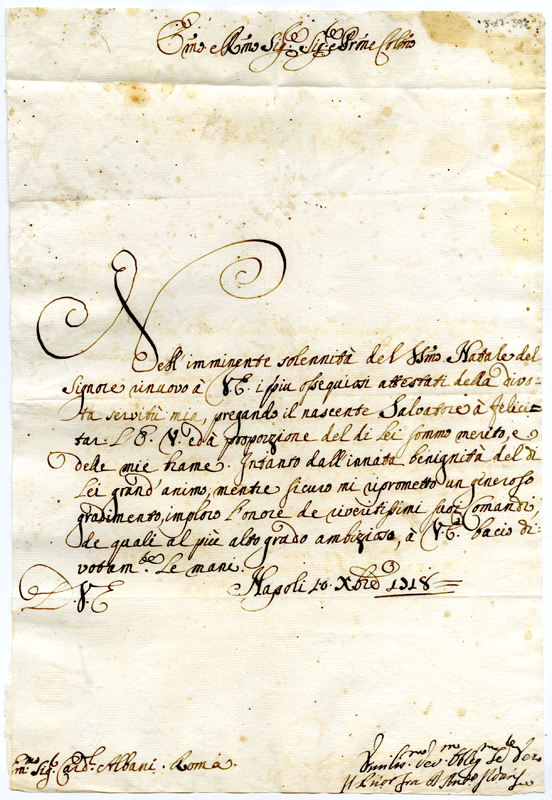 Em̃o e Rm̃o Sig.re Sig.re P̃rone Col̃mo
Nell'imminente solennità del SSm̃o Natale del
Signore rinuovo à V.E. i piu ossequiosi attestati della divo=
ta servitù mia, pregando il nascente Salvatore à felici=
tar L'E.V. ed à proporzione del di Lei sommo merito, e
delle mie brame. Intanto dall'innata benignità del di
Lei grand'animo, mentre sicuro mi riprometto un generoso
gradimento, imploro l'onore de riveritissimi suoi Comandi,
de quali al più alto grado ambizioso, à V.E. bacio di=
votam.te Le mani.
D.V.E Napoli 10. Xbre 1718
Sig. Card. Albani. Roma.
Umiliss.mo Dev.mo Oblig.mo Se.re Vero
fra